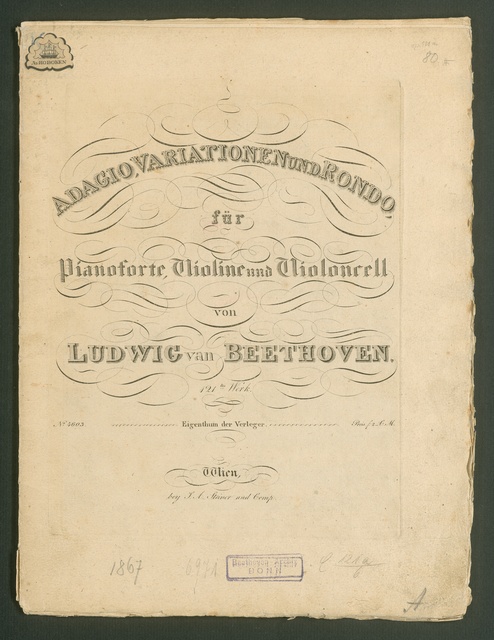 ADAGIO, VARIATIONEN UND RONDO,
für
Pianoforte, Violine und Violoncell
von
LUDWIG van BEETHOVEN.
121tes Werk.
Eigenthum der Verleger.
Wien,
bey S. A. Steiner und Comp.
1867 6971
BONN
A
80